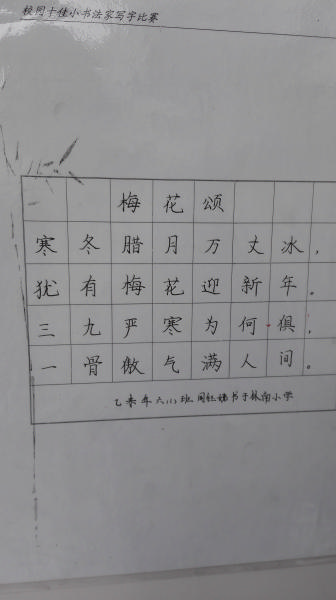 校园十佳小书法家写字比赛
梅花颂
寒冬腊月万丈冰，
犹有梅花迎新年。
三九严寒为何惧，
一骨傲气满人间。
乙 年六(1)班 周 书于林南小学